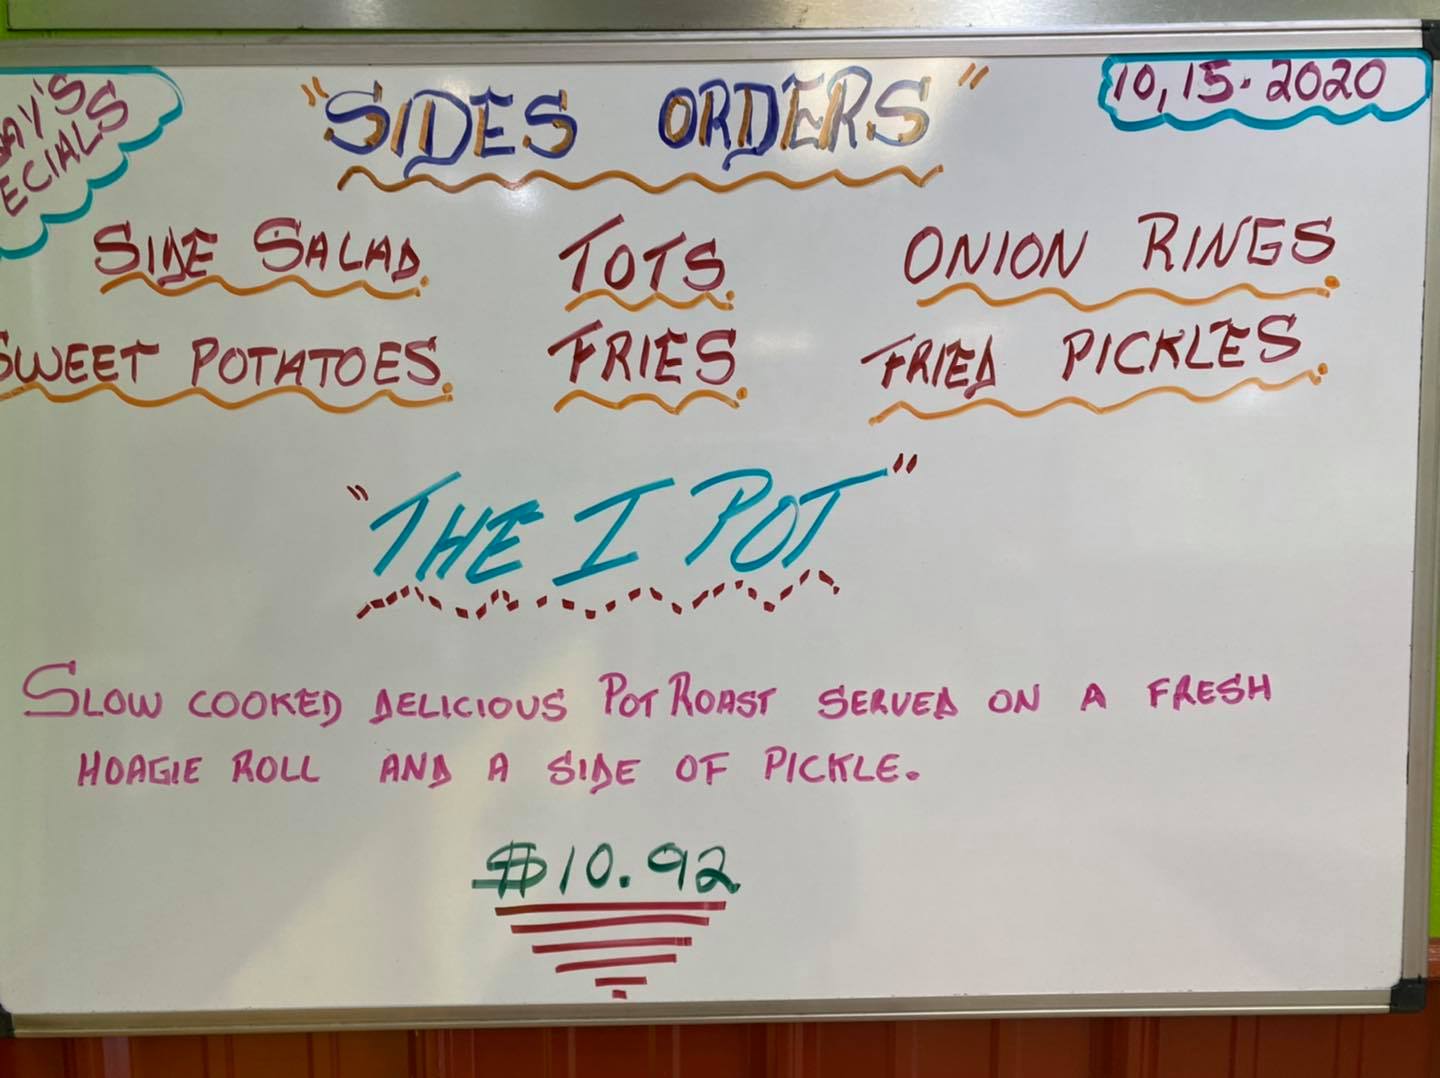 "SIDES ORDERS"
10,15.2020
SIDE SALAD. TOTS. ONION RINGS.
SWEET POTATOES. FRIES. FRIED PICKLES.
"THE I POT"
SLOW COOKED DELICIOUS POT ROAST SERVED ON A FRESH
HOAGIE ROLL AND A SIDE OF PICKLE.
$10.92